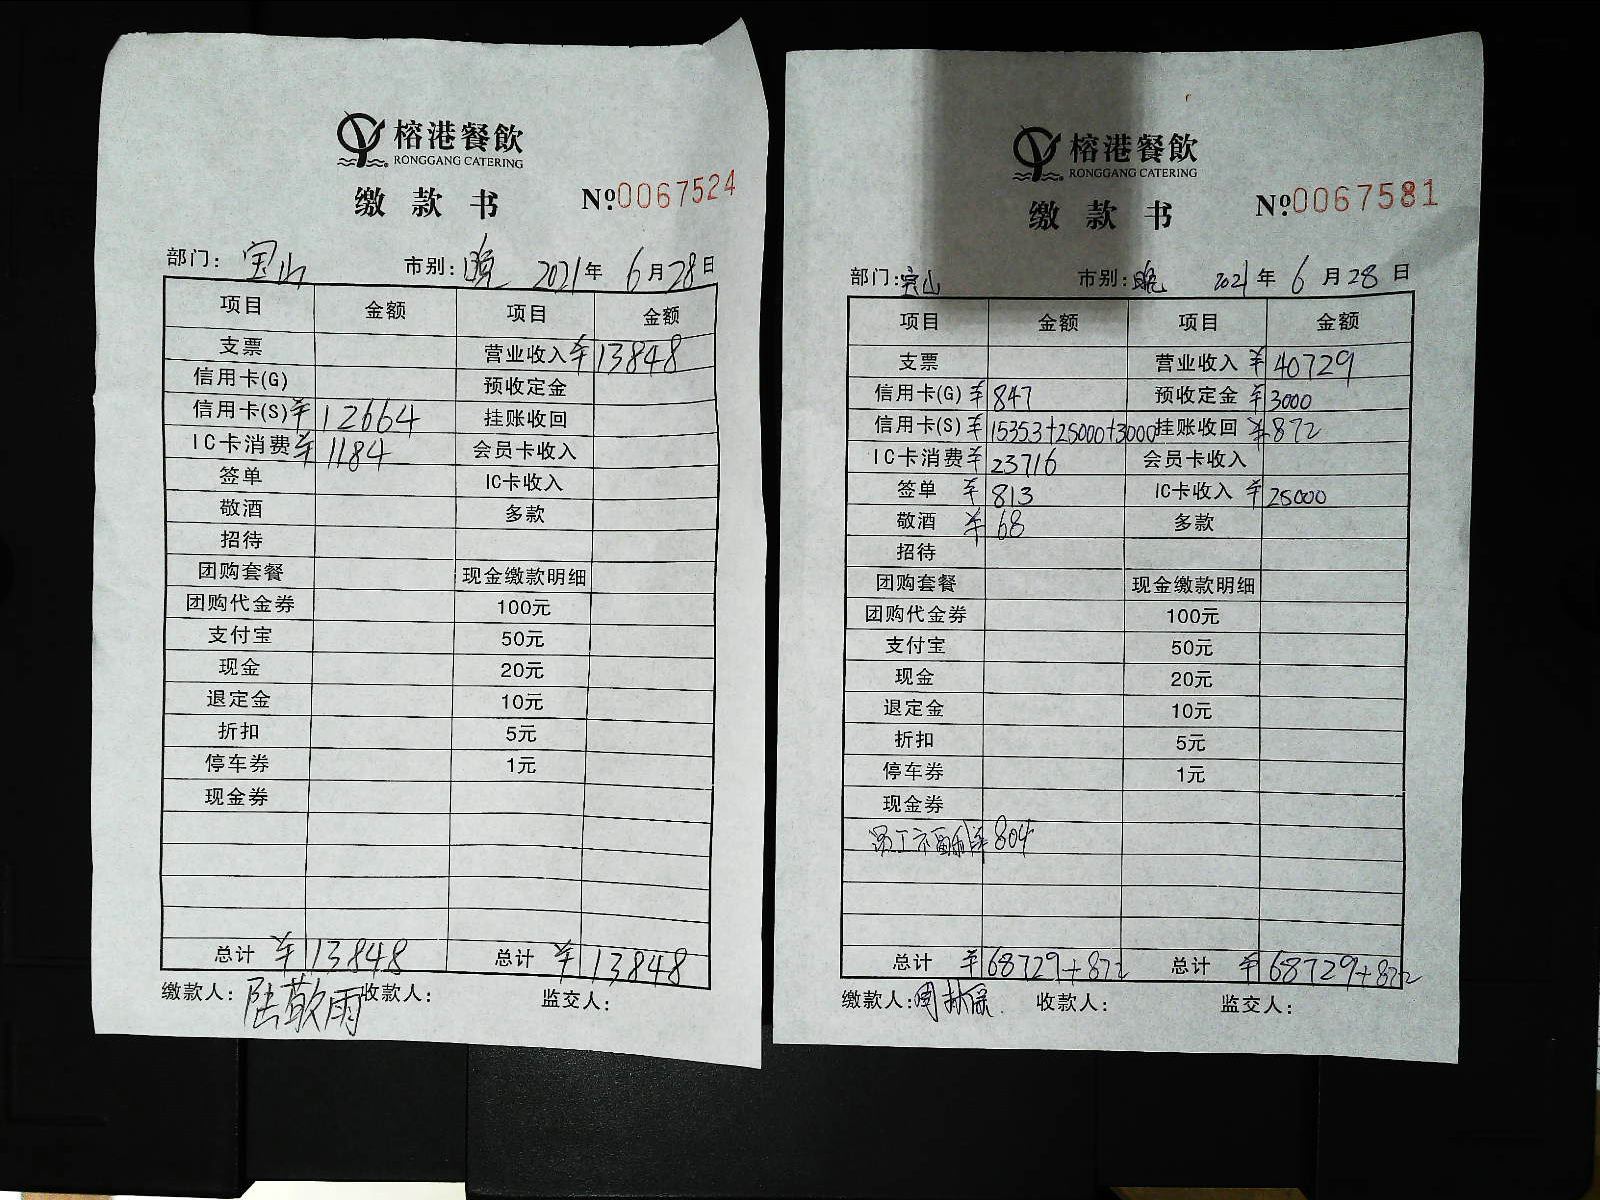 榕港餐飲
RONGGANG CATERING
缴款书 №0067524
部门: 宝山 市别: 晚 2021年 6月28日
项目 金额 项目 金额
支票 营业收入 ¥13848
信用卡(G) 预收定金
信用卡(S) ¥12664 挂账收回
IC卡消费 ¥1184 会员卡收入
签单 IC卡收入
敬酒 多款
招待
团购套餐 现金缴款明细
团购代金券 100元
支付宝 50元
现金 20元
退定金 10元
折扣 5元
停车券 1元
现金券
总计 ¥13848 总计 ¥13848
缴款人: 陆敬雨 收款人: 监交人:
榕港餐飲
RONGGANG CATERING
缴款书 №0067581
部门: 宝山 市别: 晚 2021年 6月28日
项目 金额 项目 金额
支票 营业收入 ¥40729
信用卡(G) ¥847 预收定金 ¥3000
信用卡(S) ¥15353+25000+3000 挂账收回 ¥872
IC卡消费 ¥23716 会员卡收入
签单 ¥813 IC卡收入 ¥25000
敬酒 ¥68 多款
招待
团购套餐 现金缴款明细
团购代金券 100元
支付宝 50元
现金 20元
退定金 10元
折扣 5元
停车券 1元
现金券
员工 ¥804
总计 ¥68729+872 总计 ¥68729+872
缴款人: 周 收款人: 监交人: